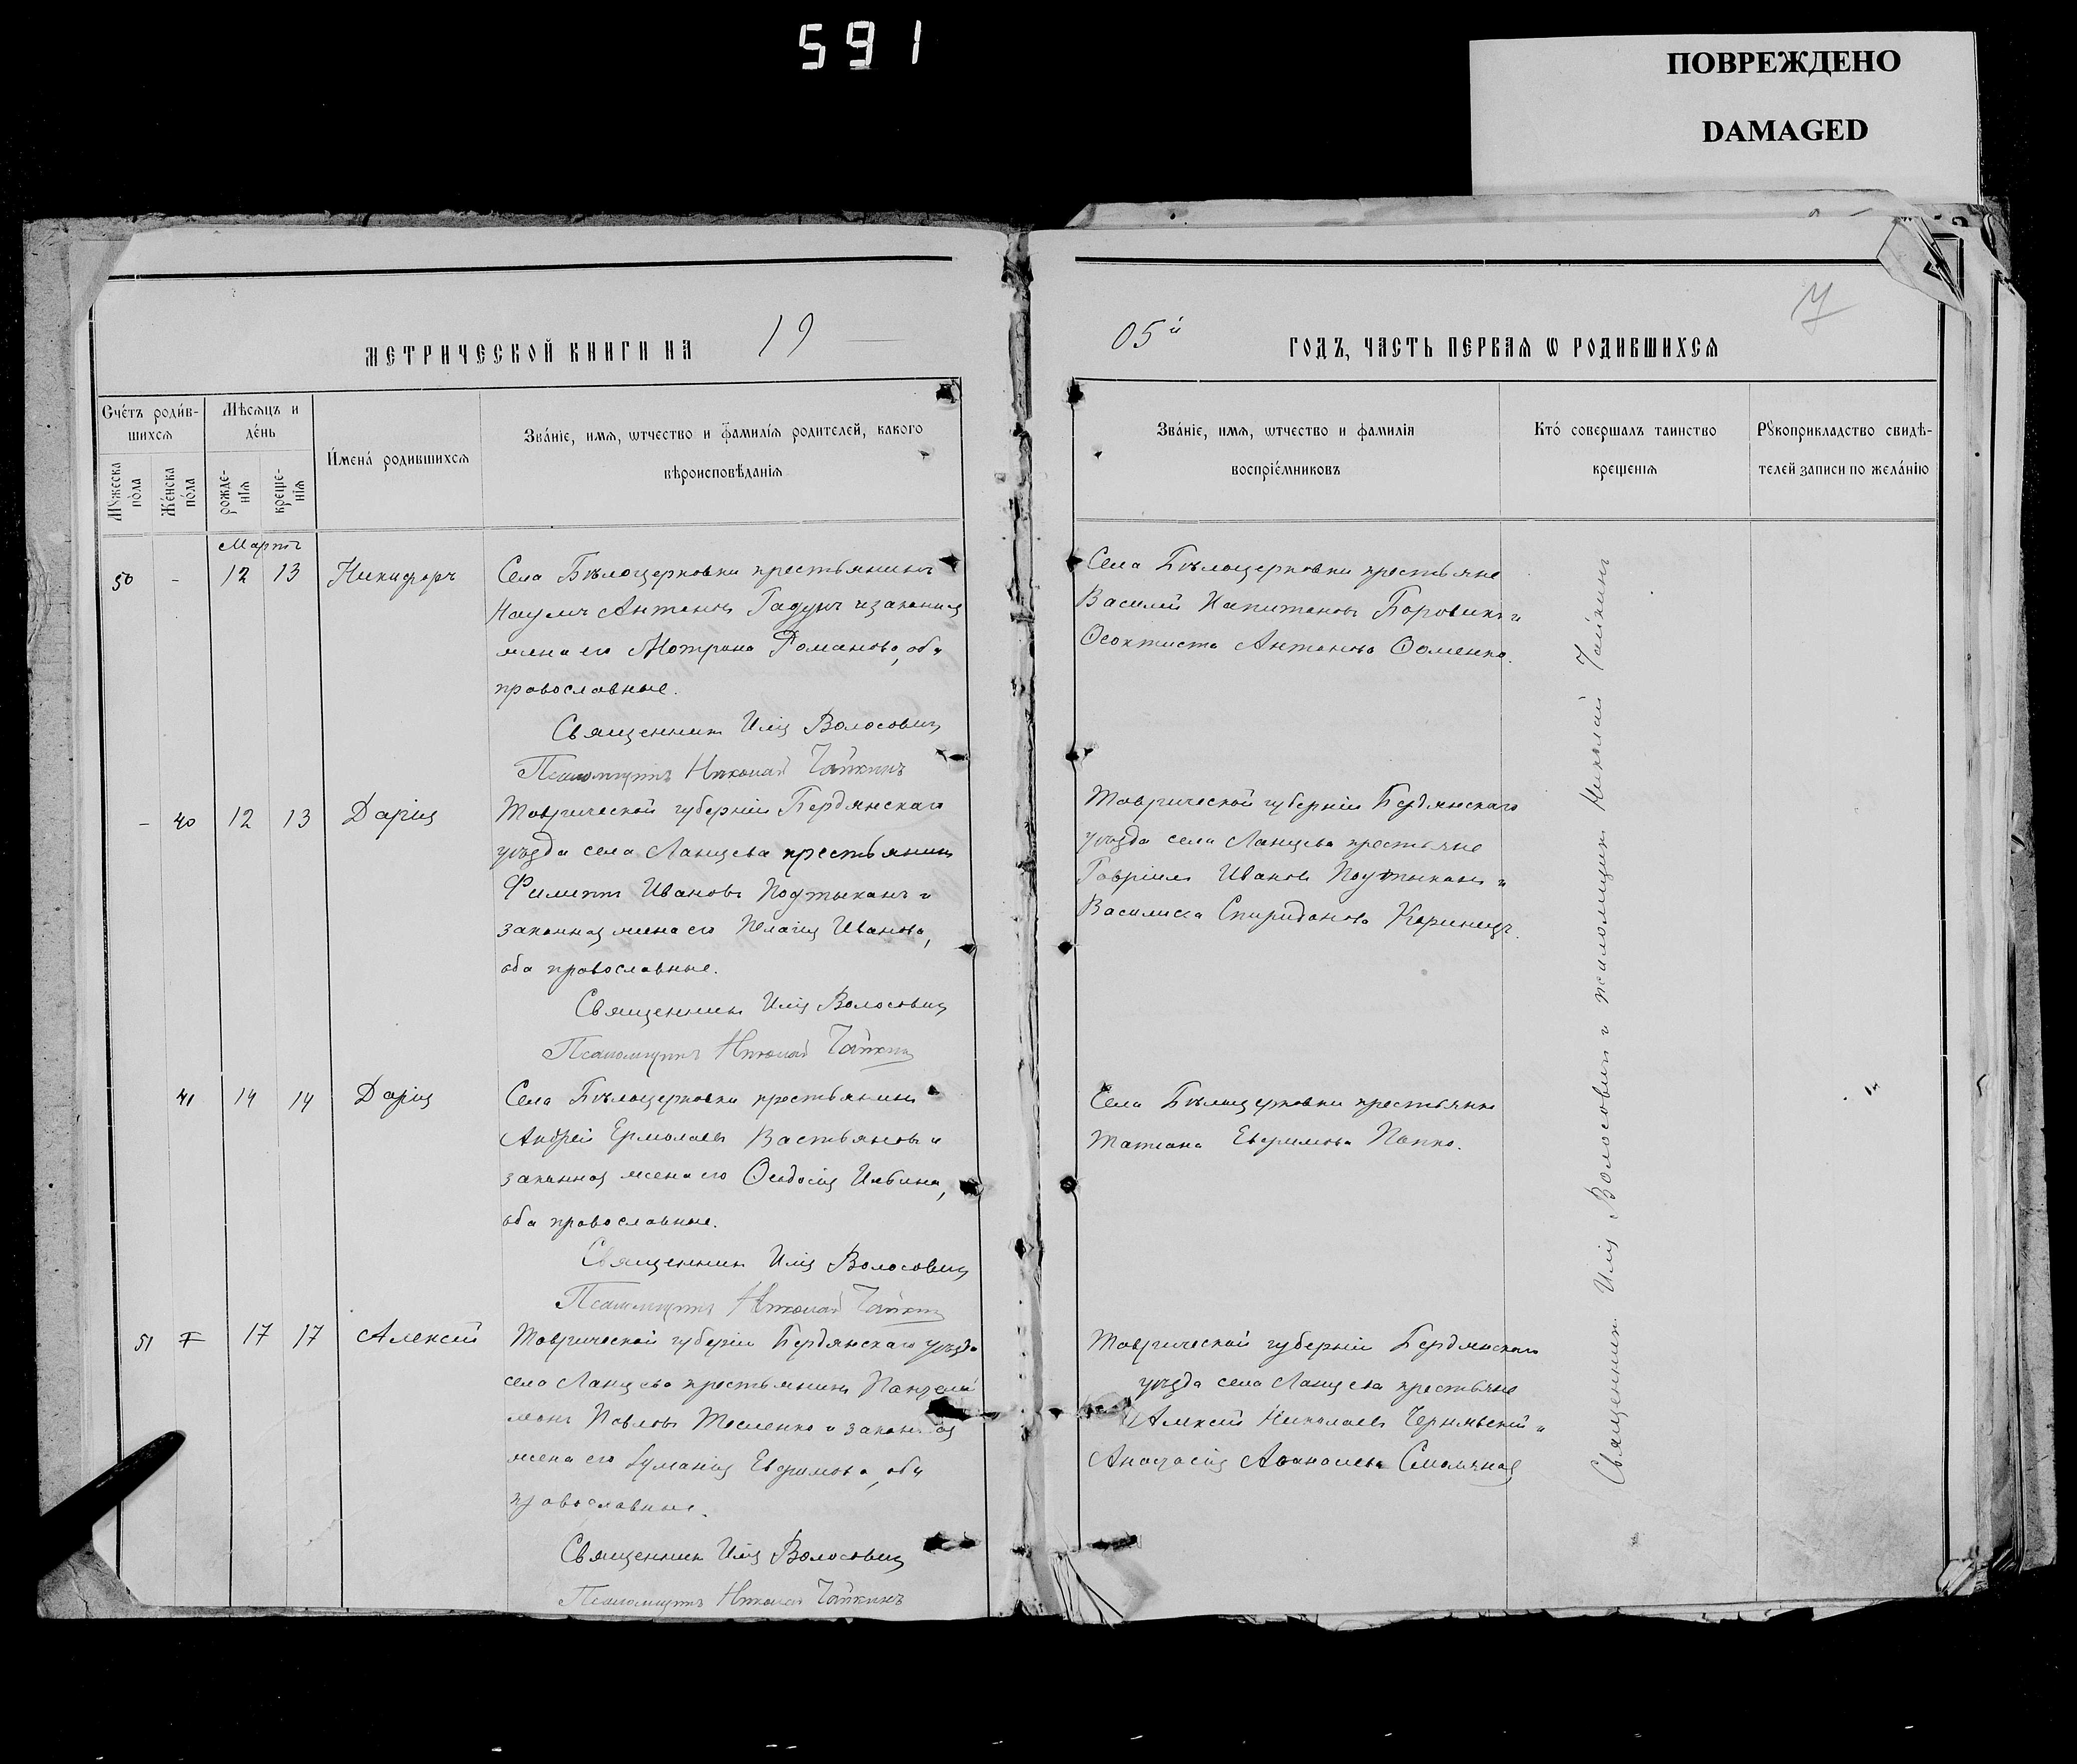 591
ПОВРЕЖДЕНО
DAMAGED
МЕТРИЧЕСКОЙ КНИГИ НА 19
05й ГОДЪ, ЧАСТЬ ПЕРВАѦ Ѡ РОДИВШИХСѦ
Счетъ родив-
шихсѧ
Мѣсѧцъ и
день
Мꙋжеска
пола
Женска
пола
рожде-
нїѧ
креще-
нїѧ
Имена родившихсѧ
Званїе, имѧ, ѡтчество и фамилїѧ родителей, какого
вѣроисповѣданїѧ
Званїе, имѧ, ѡтчество и фамилїѧ
воспрїемниковъ
Кто совершалъ таинство
крещенїѧ
Рꙋкоприкладство свидѣ-
телей записи по желанїю
Мартъ
50 - 12 13 Никифоръ
Села Бѣлоцерковки крестьянинъ
Наумъ Антоновъ Гадунъ и законная
жена его Мотрона Романова, оба
православные.
Священникъ Илія Волосовичъ
Псаломщикъ Николай Чайкинъ
Села Бѣлоцерковки крестьяне
Василій Капитоновъ Боровикъ и
Ѳеоктиста Антонова Ѳоменко.
- 40 12 13 Дарія
Таврической губерніи Бердянскаго
уѣзда села Ланцева крестьянинъ
Филиппъ Ивановъ Подтыканъ и
законная жена его Пелагія Иванова,
оба православные.
Священникъ Илія Волосовичъ
Псаломщикъ Николай Чайкинъ
Таврической губерніи Бердянскаго
уѣзда села Ланцева крестьяне
Гавріилъ Ивановъ Подтыканъ и
Василиса Спиридонова
41 14 14 Дарія
Села Бѣлоцерковки крестьянинъ
Андрей Ермолаевъ Вастьяновъ и
законная жена его Ѳеодосія Ильина,
оба православные.
Священникъ Илія Волосовичъ
Псаломщикъ Николай Чайкинъ
Села Бѣлоцерковки крестьянка
Татіана Евфимова Папка.
51 17 17 Алексій
Таврической губерніи Бердянскаго уѣзда
села Ланцева крестьянинъ Пантелей
монъ Павловъ Тесленко и законная
жена его Евфимова, оба
православные.
Священникъ Илія Волосовичъ
Псаломщикъ Николай Чайкинъ
Таврической губерніи Бердянскаго
уѣзда села Ланцева крестьяне
Алексій Николаевъ Чернявскій и
Анастасія Аѳанасьева Смоляная
Священникъ Илія Волосовичъ и псаломщикъ Николай Чайкинъ